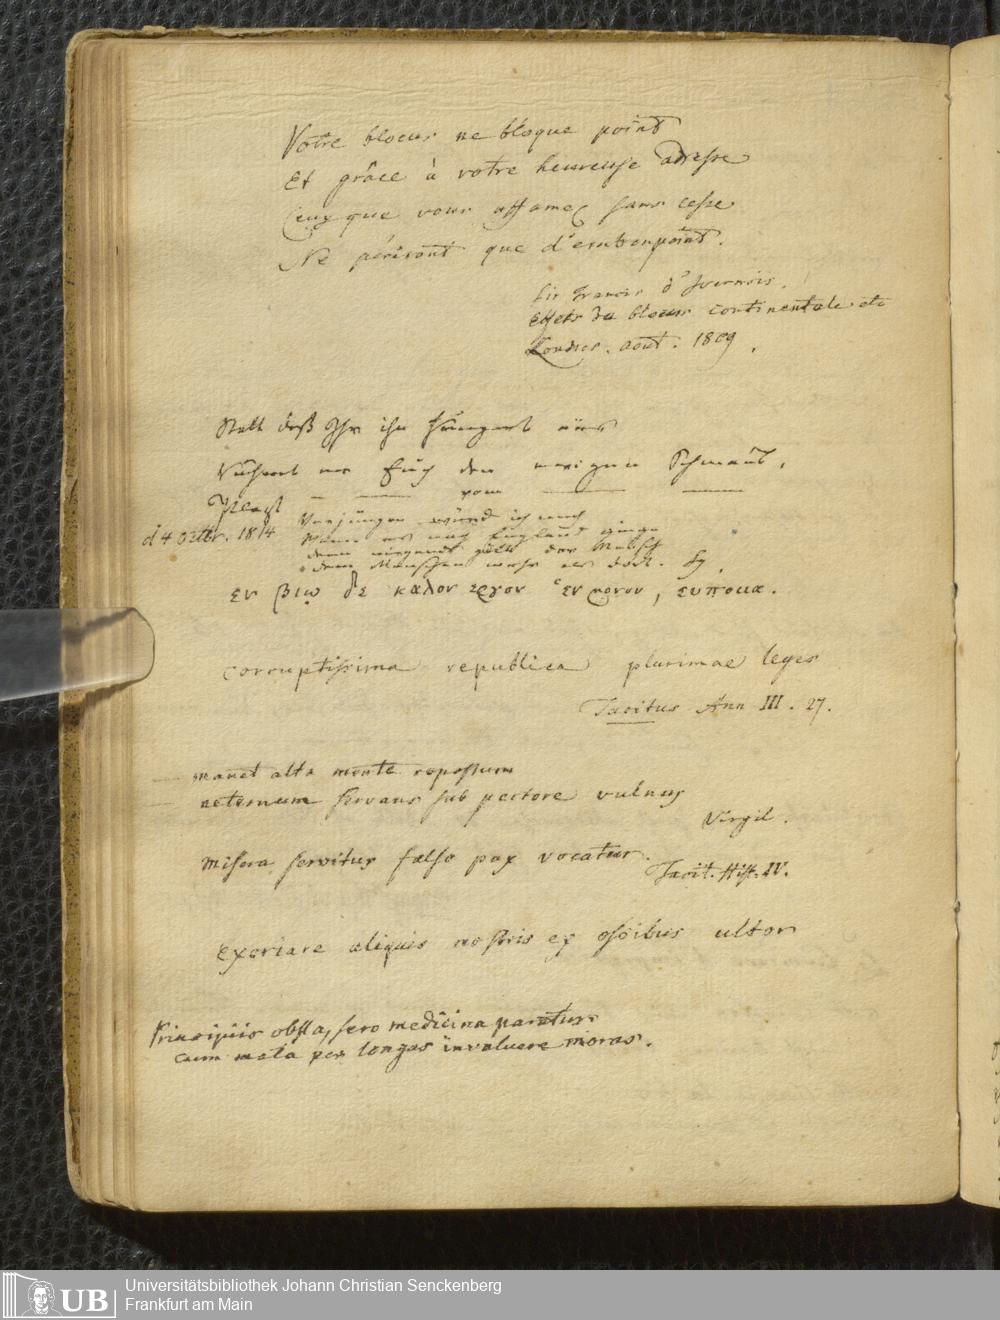 Votre blocus ne bloque point
Et grâce à votre heureuse adresse
Ceux que vous affamez sans cesse
Ne périront que d'embonpoint.
Sir Francis d'Ivernois.
Effets du blocus continentale etc
Londres. aout. 1809.
Statt daß Ihr ihn hungert aus
Euch den Schmaus,
vom
d 4 octbr. 1814
Verjüngen würd ich mich
Wenn nach England ginge
dem Menschen mehr als dort.
εν βιω δε καλον εργον εν μονον, ευποιια.
corruptissima republica plurimae leges
Tacitus Ann III. 27.
— manet alta mente repostum
— aeternum servans sub pectore vulnus
Virgil.
misera servitus falso pax vocatur.
Tacit. Hist. IV.
Exoriare aliquis nostris ex ossibus ultor
Principiis obsta, sero medicina paratur
cum mala per longas invaluere moras.
UB
Universitätsbibliothek Johann Christian Senckenberg
Frankfurt am Main